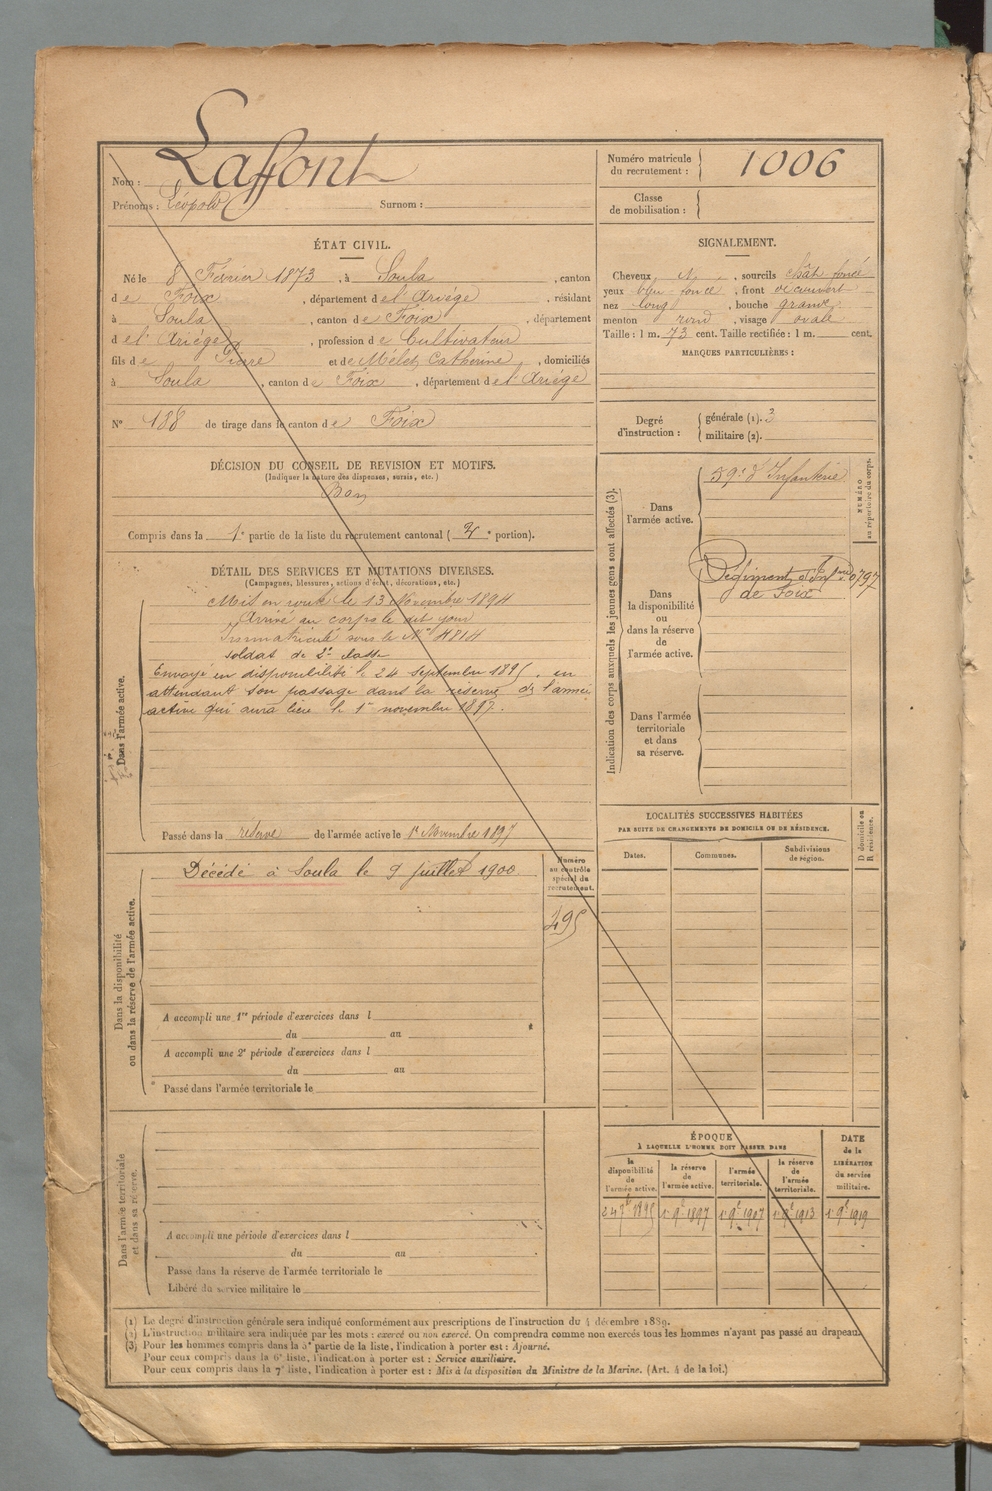 Nom : Laffont
Prénoms : Léopold Surnom :
Numéro matricule du recrutement : 1006
Classe de mobilisation :
ÉTAT CIVIL.
Né le 8 Février 1873, à Soula, canton
de Foix, département de l'Ariége, résidant
à Soula, canton de Foix, département
de l'Ariége, profession de Cultivateur
fils de Pierre et de Mélet Catherine, domiciliés
à Soula, canton de Foix, département de l'Ariége
N° 188 de tirage dans le canton de Foix
SIGNALEMENT.
Cheveux N., sourcils chât foncé
yeux bleu foncé, front découvert
nez long, bouche grande
menton rond, visage ovale
Taille : 1 m. 73 cent. Taille rectifiée : 1 m. cent.
MARQUES PARTICULIÈRES :
Degré d'instruction :
générale (1). 3
militaire (2).
DÉCISION DU CONSEIL DE REVISION ET MOTIFS.
(Indiquer la nature des dispenses, sursis, etc.)
Bon
Compris dans la 1e partie de la liste du recrutement cantonal ( 2 e portion).
DÉTAIL DES SERVICES ET MUTATIONS DIVERSES.
(Campagnes, blessures, actions d'éclat, décorations, etc.)
Dans l'armée active.
Mis en route le 13 Novembre 1894
Arrivé au corps le dit jour
Immatriculé sous le N° 4814
soldat de 2e classe
Envoyé en disponibilité le 24 septembre 1895, en
attendant son passage dans la réserve de l'armée
active qui aura lieu le 1er novembre 1897.
Passé dans la réserve de l'armée active le 1er Novembre 1897
Indication des corps auxquels les jeunes gens sont affectés (3).
NUMÉRO au répertoire du corps.
Dans l'armée active.
59e d'Infanterie
Dans la disponibilité ou dans la réserve de l'armée active.
Régiment d'Infrie 0797
de Foix
Dans l'armée territoriale et dans sa réserve.
Dans la disponibilité ou dans la réserve de l'armée active.
Décédé à Soula le 9 juillet 1900
Numéro au contrôle spécial du recrutement.
495
A accompli une 1re période d'exercices dans l
du au
A accompli une 2e période d'exercices dans l
du au
Passé dans l'armée territoriale le
LOCALITÉS SUCCESSIVES HABITÉES
PAR SUITE DE CHANGEMENTS DE DOMICILE OU DE RÉSIDENCE.
Dates. Communes. Subdivisions de région. D domicile ou R résidence.
Dans l'armée territoriale et dans sa réserve.
A accompli une période d'exercices dans l
du au
Passé dans la réserve de l'armée territoriale le
Libéré du service militaire le
ÉPOQUE
À LAQUELLE L'HOMME DOIT PASSER DANS
la disponibilité de l'armée active. la réserve de l'armée active. l'armée territoriale. la réserve de l'armée territoriale. DATE de la LIBÉRATION du service militaire.
24 7e 1895 1er 9e 1897 1er 9e 1907 1er 9e 1913 1er 9e 1919
(1) Le degré d'instruction générale sera indiqué conformément aux prescriptions de l'instruction du 4 décembre 1889.
(2) L'instruction militaire sera indiquée par les mots : exercé ou non exercé. On comprendra comme non exercés tous les hommes n'ayant pas passé au drapeau.
(3) Pour les hommes compris dans la 5e partie de la liste, l'indication à porter est : Ajourné.
Pour ceux compris dans la 6e liste, l'indication à porter est : Service auxiliaire.
Pour ceux compris dans la 7e liste, l'indication à porter est : Mis à la disposition du Ministre de la Marine. (Art. 4 de la loi.)